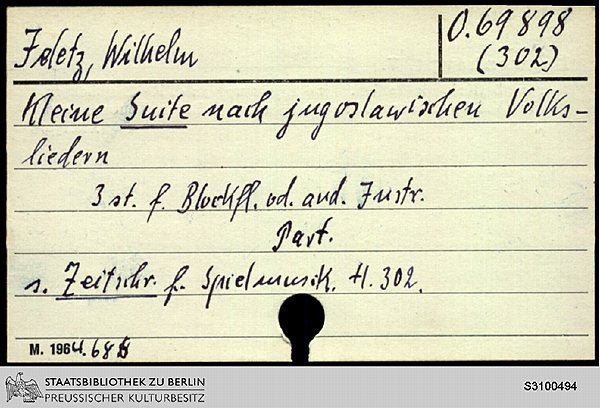 Wilhelm
O. 69898
(302)
Kleine Suite nach jugoslawischen Volks-
liedern
3 st. f. Blockfl. od. and. Instr.
Part.
s. Zeitschr. f. Spielmusik. H. 302.
M. 1964.
STAATSBIBLIOTHEK ZU BERLIN
PREUSSISCHER KULTURBESITZ
S3100494